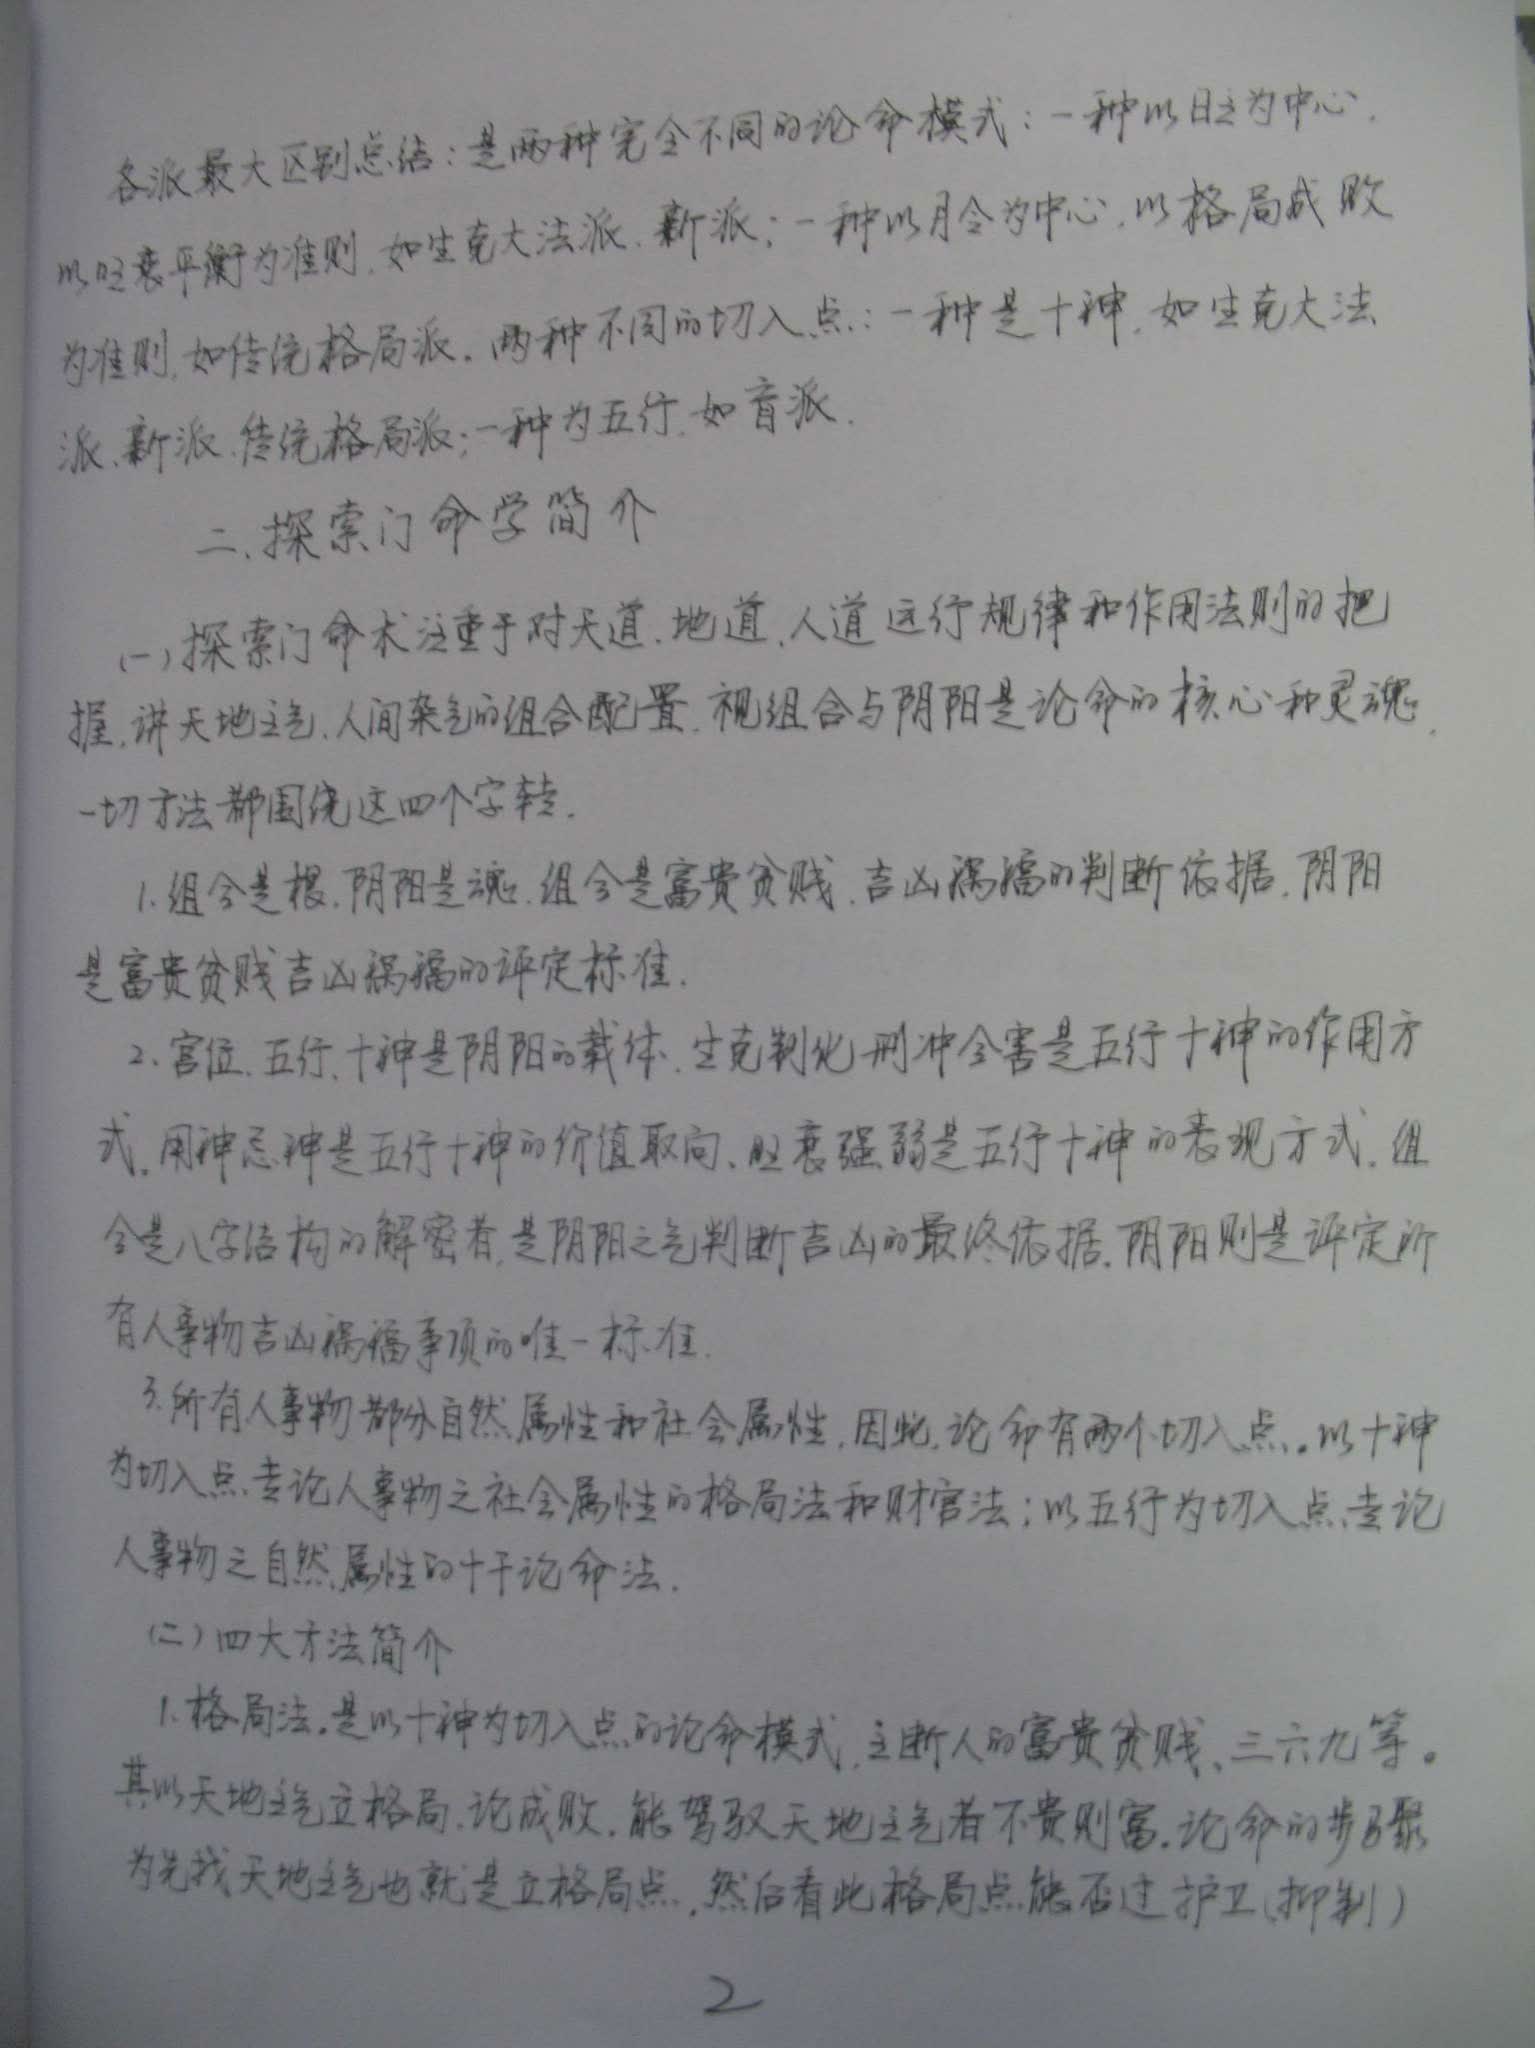 各派最大区别总结：是两种完全不同的论命模式：一种以日主为中心，
以旺衰平衡为准则，如生克大法派、新派；一种以月令为中心，以格局成败
为准则，如传统格局派。两种不同的切入点：一种是十神，如生克大法
派、新派、传统格局派；一种为五行，如盲派。
二、探索门命学简介
(一)探索门命术注重于对天道、地道、人道运行规律和作用法则的把
握，讲天地主气、人间杂气的组合配置，视组合与阴阳是论命的核心和灵魂，
一切方法都围绕这四个字转。
1、组合是根，阴阳是魂，组合是富贵贫贱、吉凶祸福的判断依据，阴阳
是富贵贫贱吉凶祸福的评定标准。
2、宫位、五行、十神是阴阳的载体，生克制化刑冲合害是五行十神的作用方
式，用神忌神是五行十神的价值取向，旺衰强弱是五行十神的表现方式，组
合是八字结构的解密者，是阴阳之气判断吉凶的最终依据。阴阳则是评定所
有人事物吉凶祸福事项的唯一标准。
3、所有人事物都分自然属性和社会属性，因此，论命有两个切入点。以十神
为切入点专论人事物之社会属性的格局法和财官法；以五行为切入点专论
人事物之自然属性的十干论命法。
(二)四大方法简介
1、格局法。是以十神为切入点的论命模式，主断人的富贵贫贱、三六九等。
其以天地主气立格局、论成败，能驾驭天地主气者不贵则富。论命的步骤
为先找天地主气也就是立格局点，然后看此格局点能否过护卫(抑制)
2